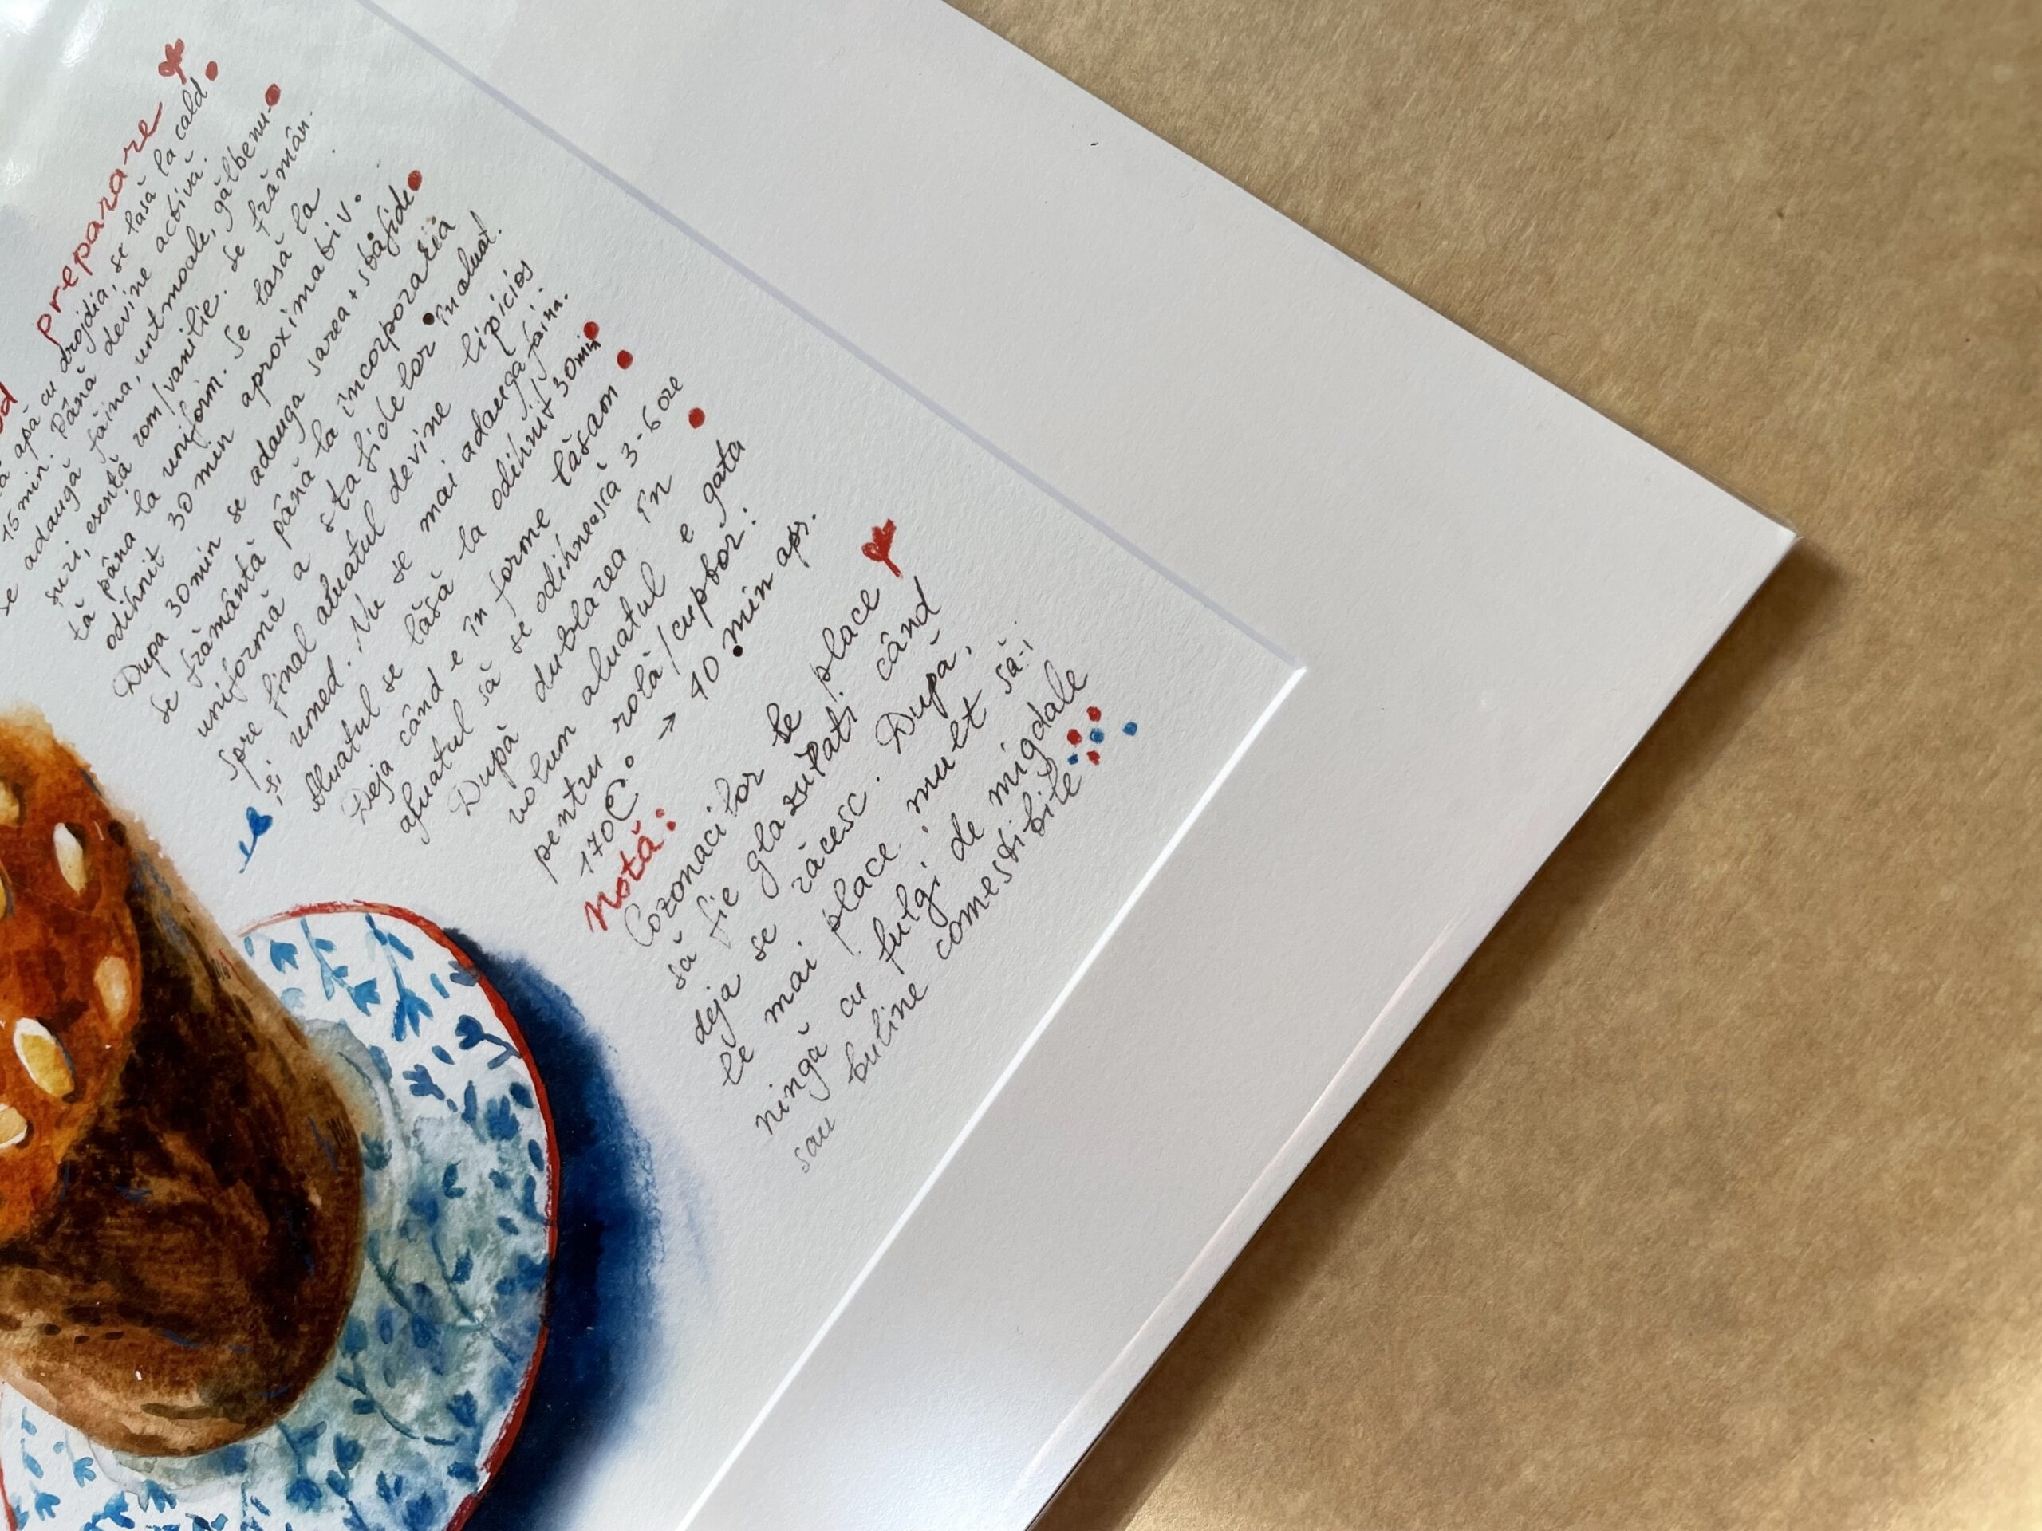 preparare
apă cu drojdia, se lasă la cald
15 min. Până devine activă.
se adaugă făina, unt moale, gălbenu-
suri, esentă rom/vanilie. se frămân.
tă pâna la uniform. Se lasă la
odihnit 30 min aproximativ.
După 30 min se adauga sarea + stafide
se frământă până la incorporarea
uniformă a stafidelor în aluat.
Spre final aluatul devine lipicios
si umed. Nu se mai adaugă făină.
Aluatul se lăsă la odihnit 30 min
Deja când e în forme lăsam
aluatul să se odihnească 3-6 ore
După dublarea în
volum aluatul e gata
pentru rolă/cuptor:
170C° → 40 min apr.
notă:
Cozonacilor le place
să fie glazurați când
deja se răcesc. După,
le mai place mult să-i
ningă cu fulgi de migdale
sau buline comestibile